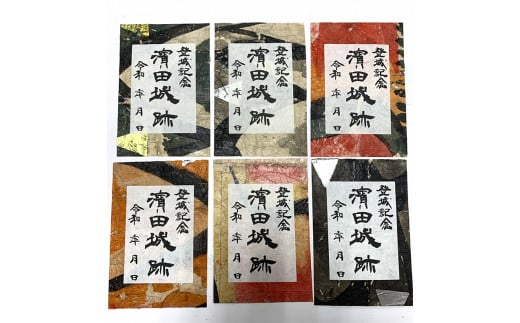 登城記念
濵田城跡
令和 年 月 日
登城記念
濵田城跡
令和 年 月 日
登城記念
濵田城跡
令和 年 月 日
登城記念
濵田城跡
令和 年 月 日
登城記念
濵田城跡
令和 年 月 日
登城記念
濵田城跡
令和 年 月 日